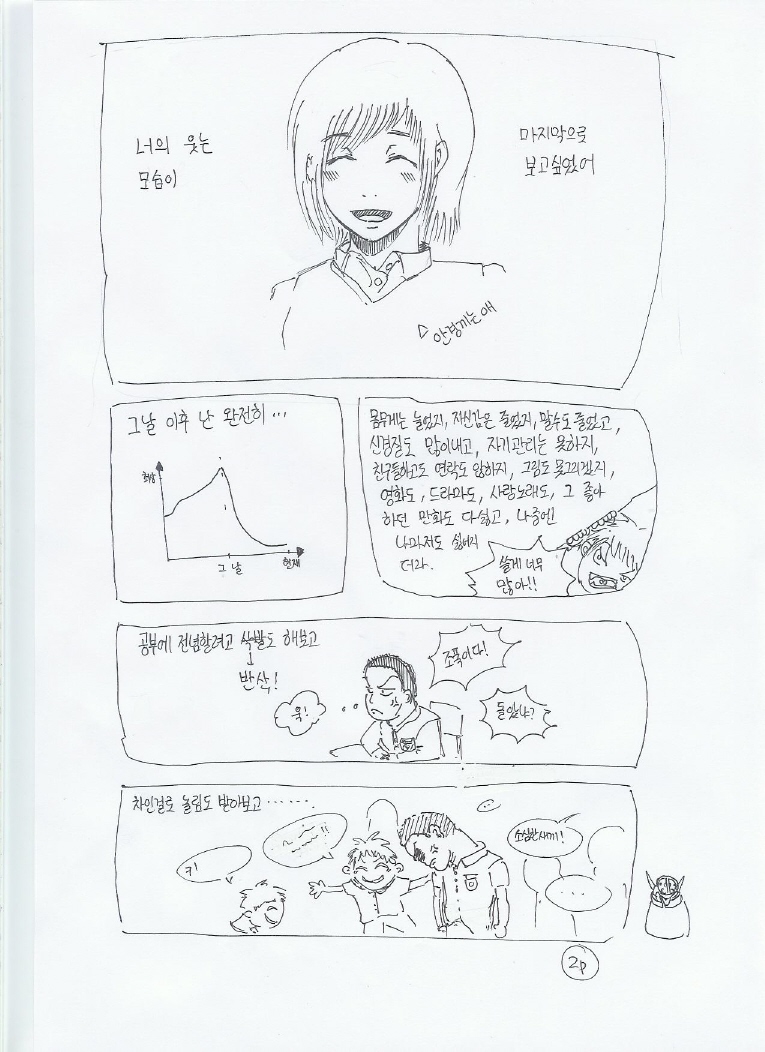 너의 웃는
모습이
마지막으로
보고싶었어
안경끼는애
그날 이후 난 완전히 …
그 날
현재
몸무게는 늘었지, 자신감은 줄었지, 말수도 줄었고,
신경질도 많이내고, 자기관리는 못하지,
친구들하고도 연락도 안하지, 그림도 못그리겠지,
영화도, 드라마도, 사랑노래도, 그 좋아
하던 만화도 다싫고, 나중엔
나마저도 싫어지
더라.
쓸게 너무
많아!!
공부에 전념할려고 삭발도 해보고
반삭!
욱!
조폭이다!
돌았냐?
차인걸로 놀림도 받아보고 ········
키!
소심한새끼!
...
2p